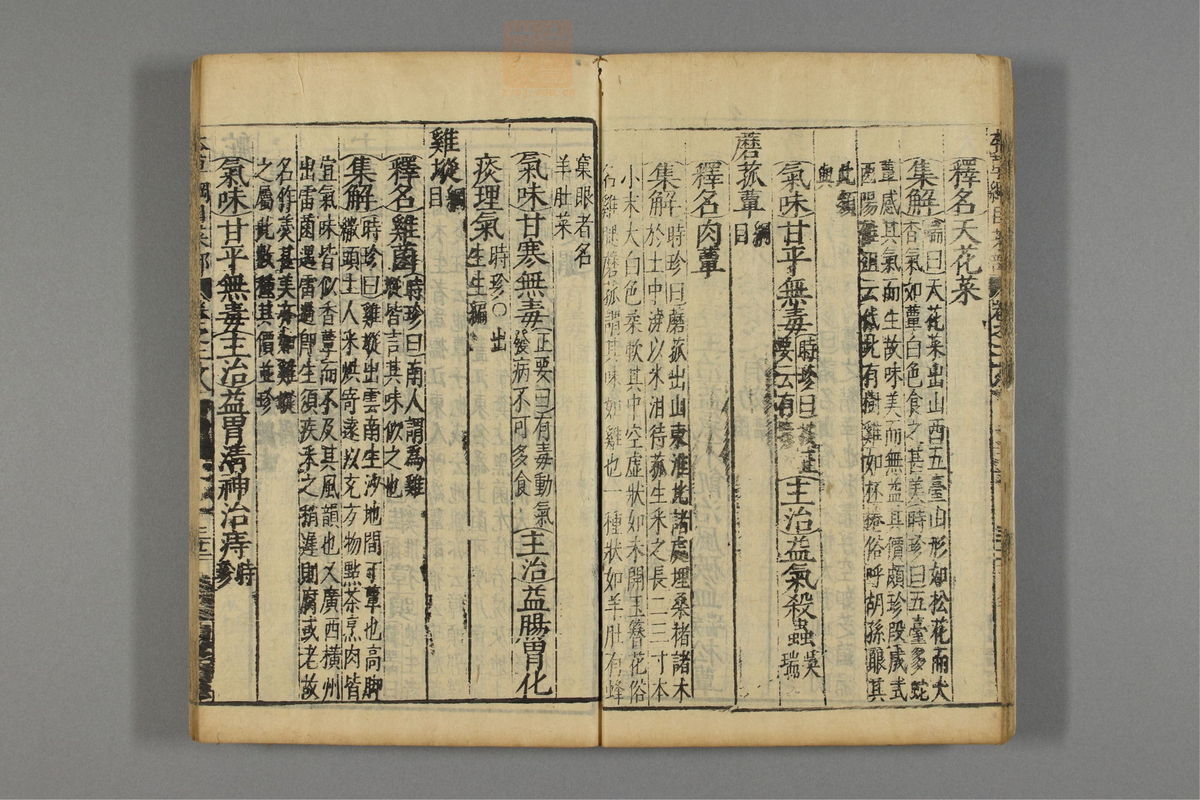 釋名天花菜
集解瑞曰天花菜出山西五臺山形如松花而大
香氣如蕈白色食之甚美時珍曰五臺多蛇
蕈感其氣而生故味美而無益其價頗珍段成式
酉陽雜俎云代北有樹雞如杯棬俗呼胡孫眼其
此類
與
氣味甘平無毒時珍曰正
要云有毒主治益氣殺蟲吳
瑞
蘑菰蕈綱
目
釋名肉蕈
集解時珍曰蘑菰出山東淮北諸處埋桑楮諸木
於土中澆以米泔待菰生采之長二三寸本
小末大白色柔軟其中空虛狀如未開玉簪花俗
名雞腿蘑菰謂其味如雞也一種狀如羊肚有蜂
窠眼者名
羊肚菜
氣味甘寒無毒正要曰有毒動氣
發病不可多食主治益腸胃化
痰理氣時珍○出
生生編
雞㙡綱
目
釋名雞菌時珍曰南人謂為雞
㙡皆言其味似之也
集解時珍曰雞㙡出雲南生沙地間丁蕈也高脚
繖頭土人采烘寄遠以充方物點茶烹肉皆
宜氣味皆似香蕈而不及其風韻也又廣西橫州
出雷菌遇雷過即生須疾采之稍遲則腐或老故
名作羹甚美亦如雞㙡
之屬此數種其價並珍
氣味甘平無毒主治益胃清神治痔時
珍